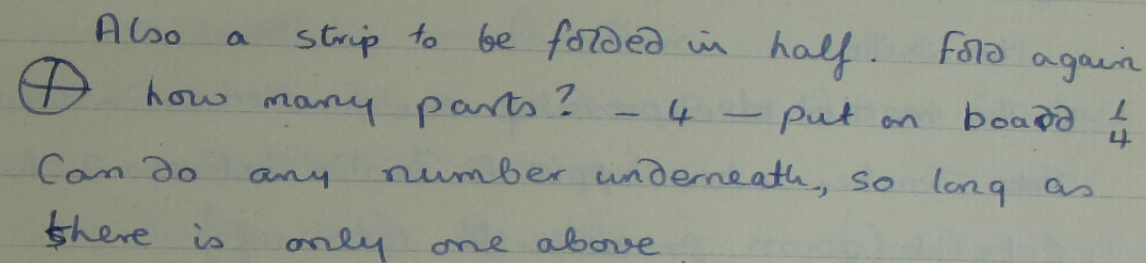 Also a strip to be folded in half. Fold again
how many parts? - 4 - put on board 1/4
Can do any number underneath, so long as
there is only one above